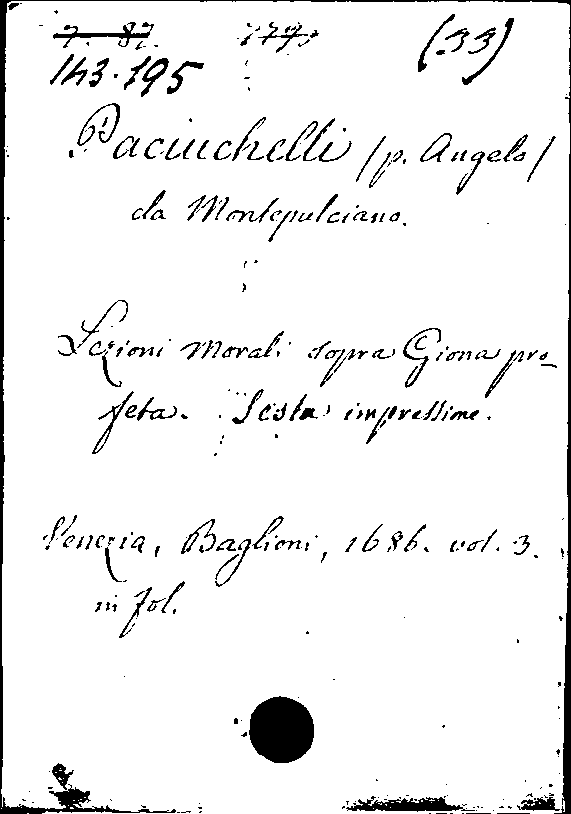 7. 87.
(33)
143.195
Paciuchelli (p. Angelo)
da Montepulciano.
Lezioni morali sopra Giona pro-
feta. Sesta impressione.
Venezia, Baglioni, 1686. vol. 3.
in fol.